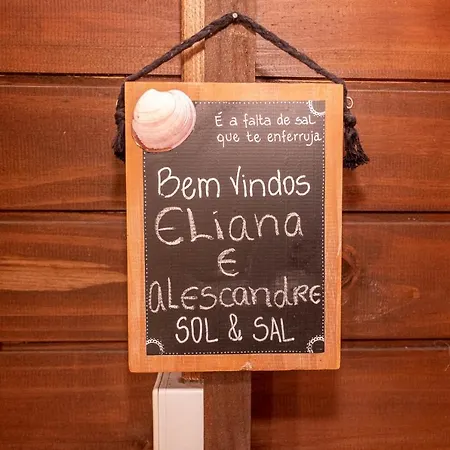 É a falta de sal
que te enferruja
Bem vindos
ELiana
E
aLEScanDRE
SOL & SAL